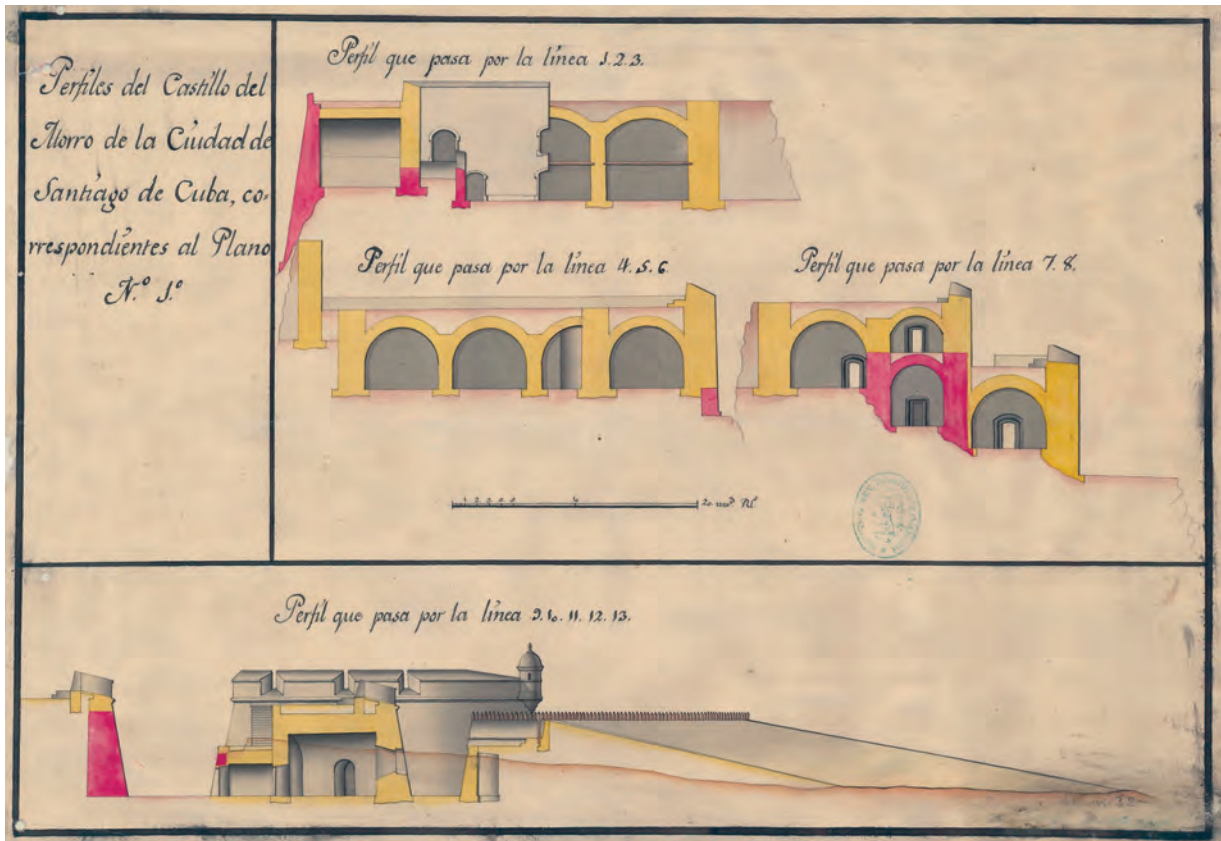 Perfiles del Castillo del
Morro de la Ciudad de
Santiago de Cuba, co-
rrespondientes al Plano
N.º 1.º
Perfil que pasa por la línea 1.2.3.
Perfil que pasa por la línea 4.5.6.
Perfil que pasa por la línea 7.8.
Perfil que pasa por la línea 9.10.11.12.13.